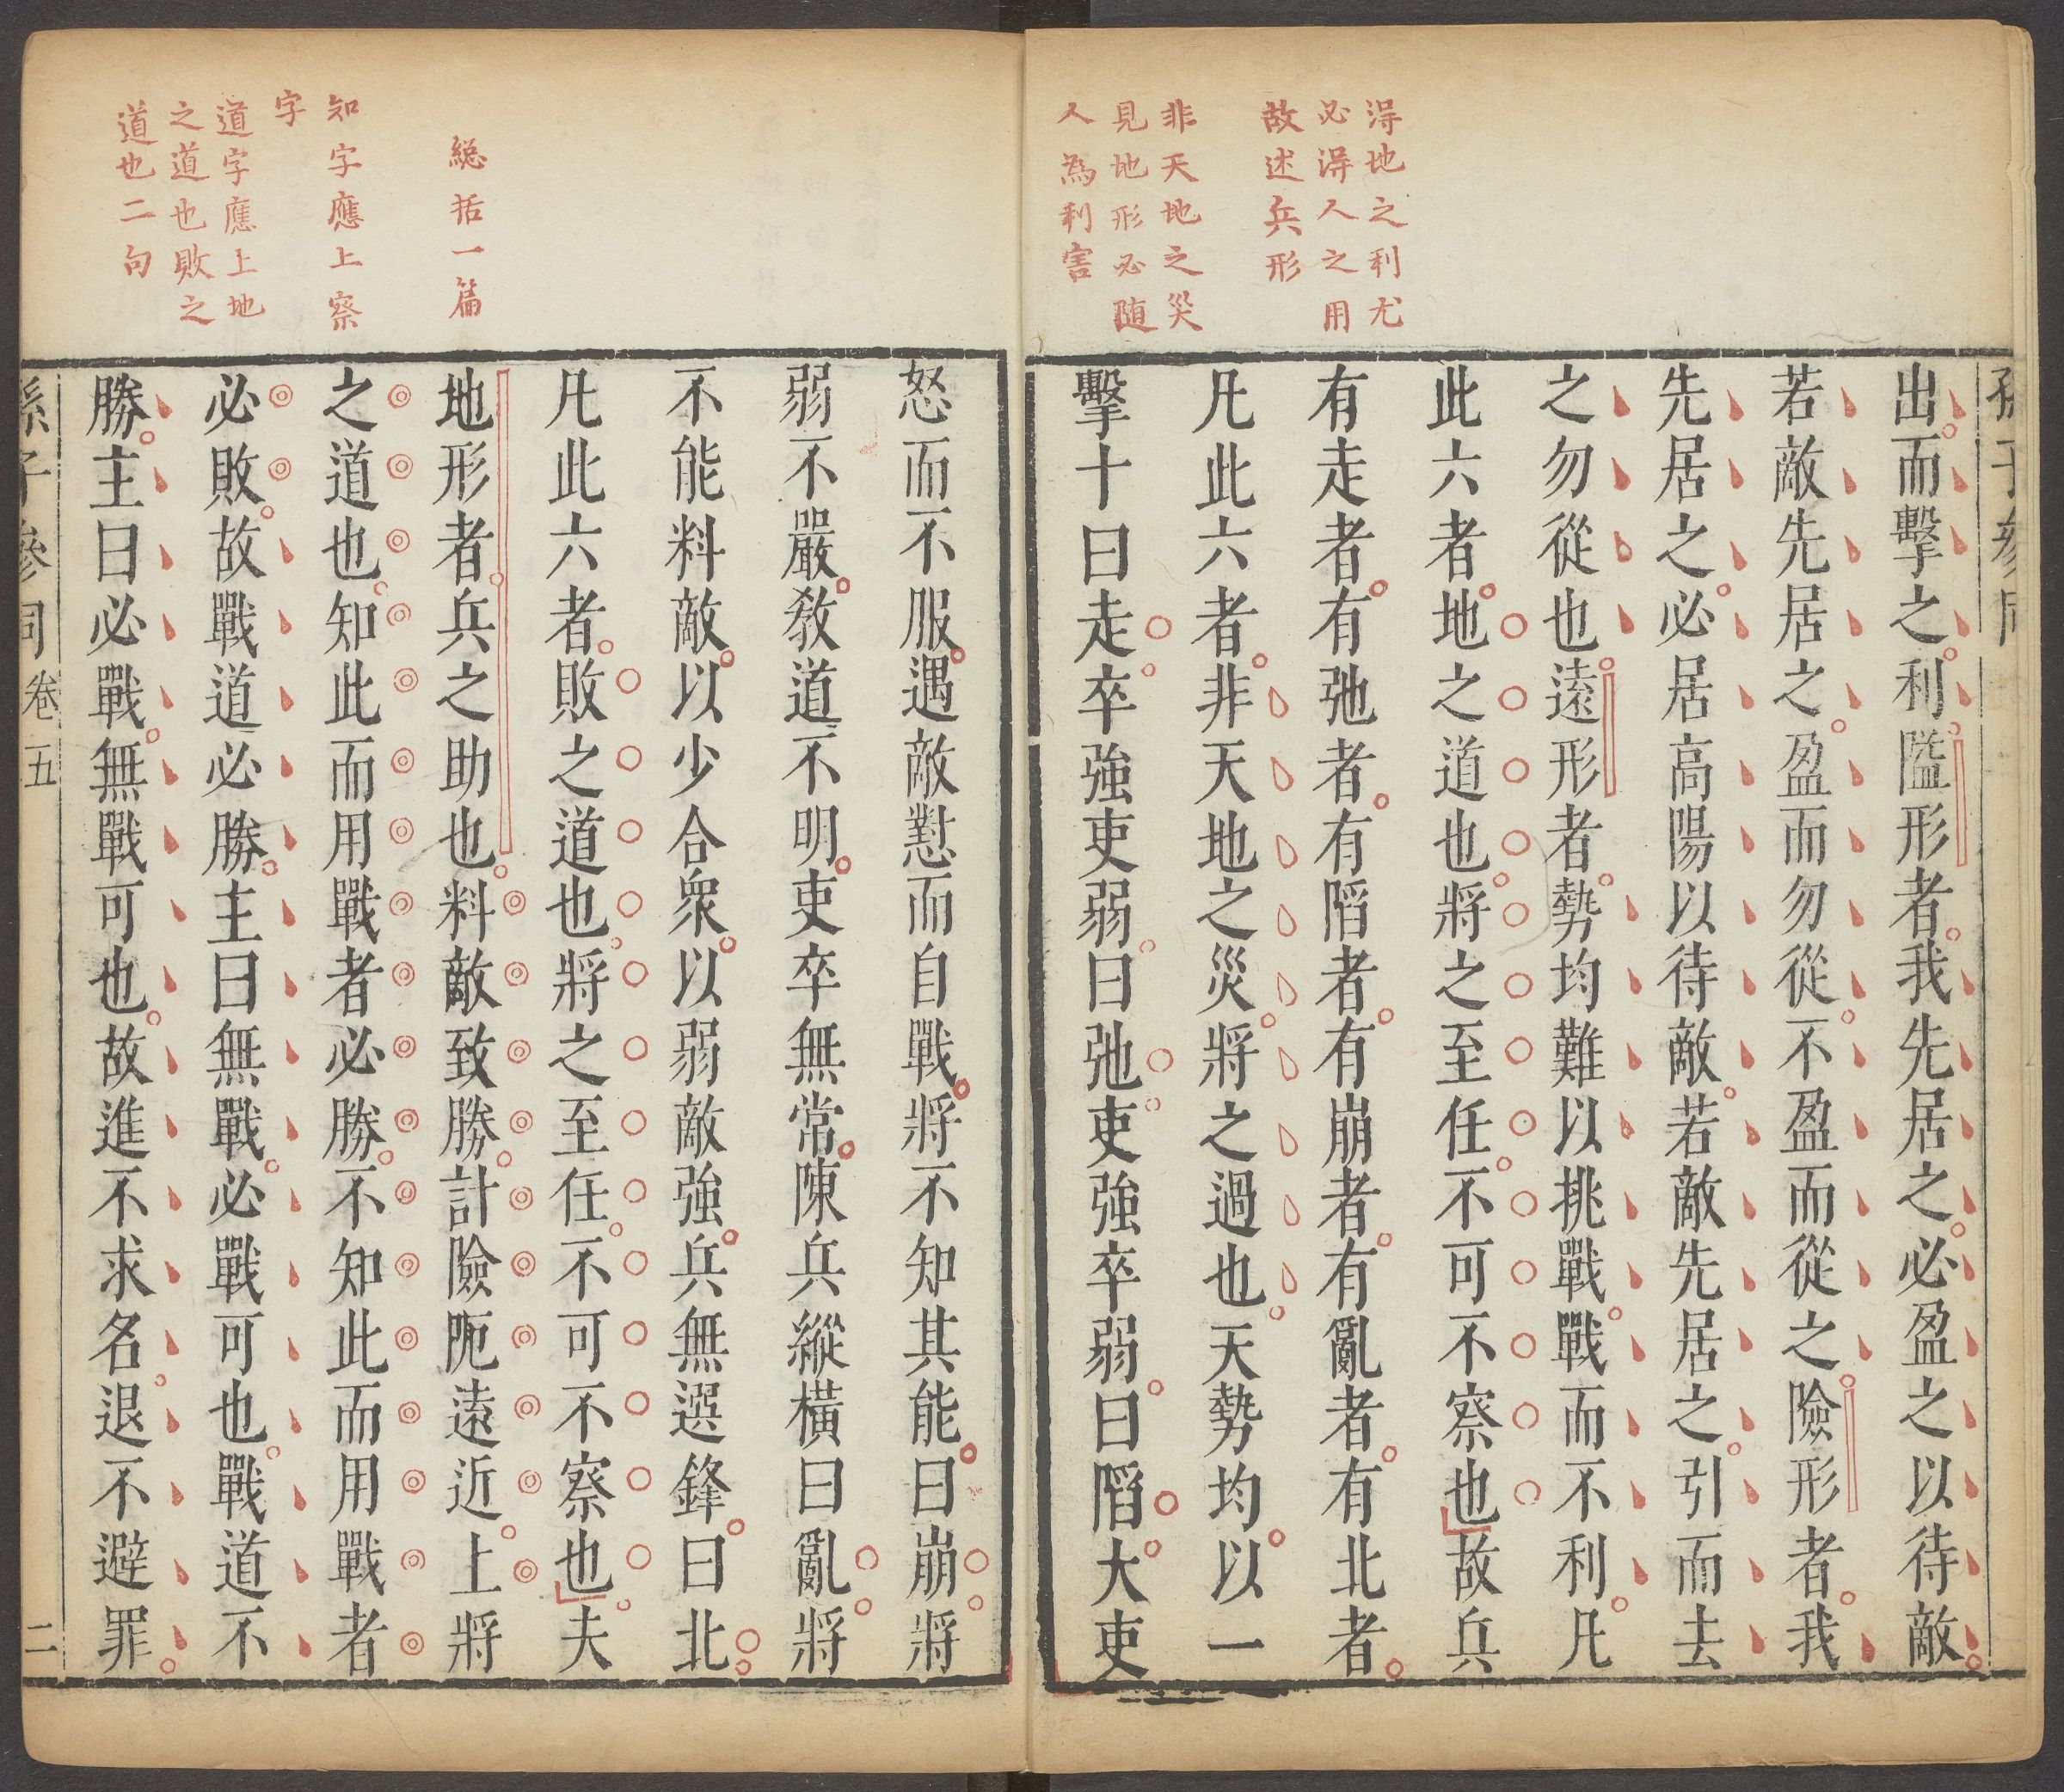 得地之利尤
必得人之用
故述兵形
非天地之災
見地形必随
人為利害
出而擊之利隘形者我先居之必盈之以待敵
若敵先居之盈而勿從不盈而從之險形者我
先居之必居高陽以待敵若敵先居之引而去
之勿從也遠形者勢均難以挑戰戰而不利凡
此六者地之道也將之至任不可不察也故兵
有走者有弛者有陷者有崩者有亂者有北者
凡此六者非天地之災將之過也天勢均以一
擊十曰走卒強吏弱曰弛吏強卒弱曰陷大吏
總括一篇
知字應上察
字
道字應上地
之道也敗之
道也二句
怒而不服遇敵懟而自戰將不知其能曰崩將
弱不嚴教道不明吏卒無常陳兵縱橫曰亂將
不能料敵以少合衆以弱敵強兵無選鋒曰北
凡此六者敗之道也將之至任不可不察也夫
地形者兵之助也料敵致勝計險阨遠近上將
之道也知此而用戰者必勝不知此而用戰者
必敗故戰道必勝主曰無戰必戰可也戰道不
勝主曰必戰無戰可也故進不求名退不避罪
孫子參同 卷五 二